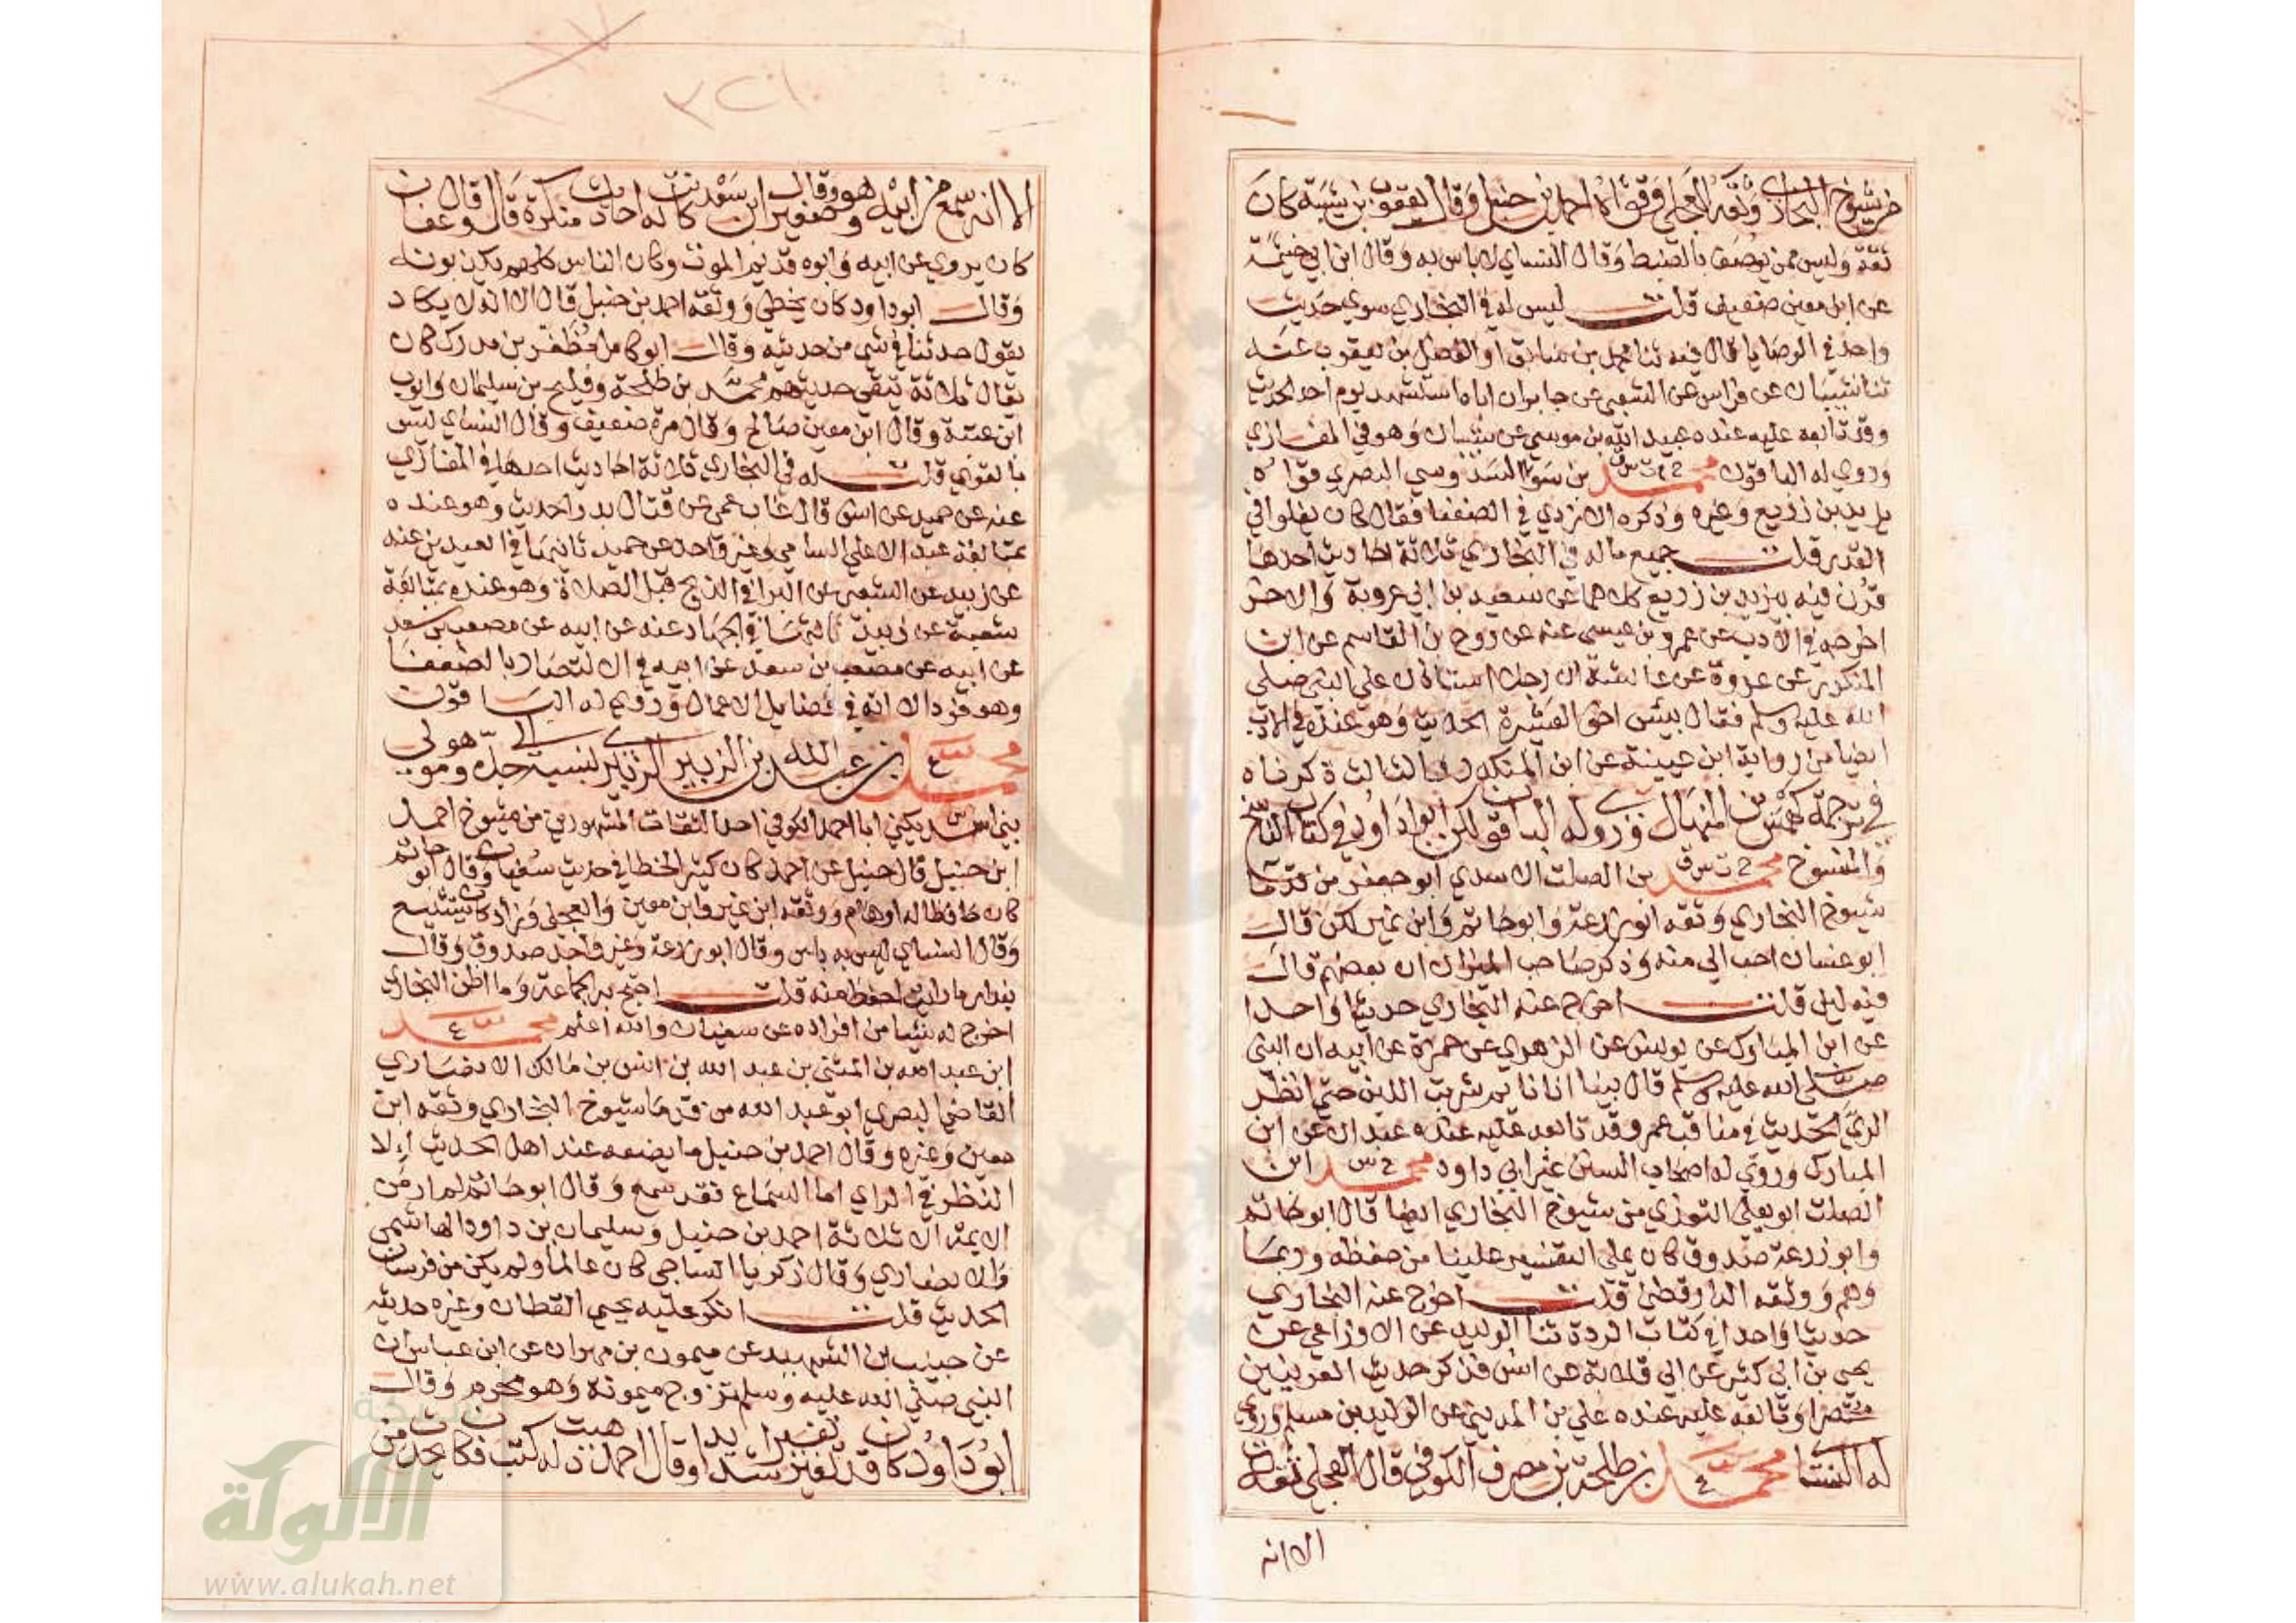 من شيوخ البخاري وثقه العجلي وقواه احمد بن حنبل وقال يعقوب بن شيبة كان
ثقة وليس ممن يوصف بالضبط وقال النساي لا باس به وقال ابن ابي خيثمة
عن ابن معين ضعيف قلت ليس له في البخاري سوي حديث
واحد في الوصايا قال فيه ثنا محمد بن سابق او الفضل بن يعقوب عنه
ثنا شيبان عن فراس عن الشعبي عن جابر ان اباه استشهد يوم احد الحديث
وقد تابعه عليه عنده عبيد الله بن موسي عن شيبان وهو في المغازي
وروي له الباقون محمد خ س ق بن سوا السدوسي البصري قواه
يزيد بن زريع وغيره وذكره الازدي في الضعفا فقال كان يغلو في
القدر قلت جميع ماله في البخاري ثلاثة احاديث احدها
قرن فيه بيزيد بن زريع كلاهما عن سعيد بن ابي عروبة والاخر
اخرجه في الادب عن عمرو بن عيسي عنه عن روح بن القاسم عن ابن
المنكدر عن عروة عن عائشة ان رجلا استاذن علي النبي صلي
الله عليه وسلم فقال بيس اخو العشيرة الحديث وهو عنده في الادب
ايضا من رواية ابن عيينة عن ابن المنكدر والثالث ذكرناه
في ترجمة كهمس بن المنهال وروي له الباقون لكن ابو داود في كتاب الناسخ
والمنسوخ محمد خ ت س ق بن الصلت الاسدي ابو جعفر من قدما
شيوخ البخاري وثقه ابو زرعة وابو حاتم وابن نمير لكن قال
ابو غسان احب الي منه وذكر صاحب الميزان ان بعضهم قال
فيه لين قلت اخرج عنه البخاري حديثا واحدا
عن ابن المبارك عن يونس عن الزهري عن حمزة عن ابيه ان النبي
صلي الله عليه وسلم قال بينا انا نايم شربت اللبن حتي انظر
الري الحديث في مناقب عمر وقد تابعه عليه عنده عبدان عن ابن
المبارك وروي له اصحاب السنن غير ابي داود محمد خ س ابن
الصلت ابو يعلي التوزي من شيوخ البخاري ايضا قال ابو حاتم
وابو زرعة صدوق كان يملي التفسير علينا من حفظه وربما
وهم ووثقه الدارقطني قلت اخرج عنه البخاري
حديثا واحدا في كتاب الردة ثنا الوليد عن الاوزاعي عن
يحي بن ابي كثير عن ابي قلابة عن انس فذكر حديث العرنيين
مختصرا وتابعه عليه عنده علي بن المديني عن الوليد بن مسلم وروي
له النسا محمد ع بن طلحة بن مصرف الكوفي قال العجلي ثقة
الا انه
٣٢١
الا انه سمع من ابيه وهو صغير وقال ابن سعد كانت له احاديث منكرة قال وقال عفان
كان يروي عن ابيه وابوه قديم الموت وكان الناس كانهم يكذبونه
وقال ابو داود كان يخطي ووثقه احمد بن حنبل قال الا انه لا يكاد
يقول حدثنا في شي من حديثه وقال ابو كامل مظفر بن مدرك كان
يقال ثلاثة يتقي حديثهم محمد بن طلحة وفليح بن سليمان وايوب
ابن عتبة وقال ابن معين صالح وقال مرة ضعيف وقال النساي ليس
بالقوي قلت له في البخاري ثلاثة احاديث احدها في المغازي
عنه عن حميد عن انس قال غاب عمي عن قتال بدر الحديث وهو عنده
بمتابعة عبد الاعلي السامي وغير واحد عن حميد ثانيها في العيدين عنه
عن زبيد عن الشعبي عن البرا في الذبح قبل الصلاة وهو عنده بمتابعة
شعبة عن زبيد ثالثها في الجهاد عنه عن ابيه عن مصعب بن سعد
عن ابيه عن مصعب بن سعد عن ابيه في الانتصار بالضعفا
وهو فرد الا انه في فضايل الاعمال وروي له الباقون
محمد ع بن عبد الله بن الزبير الزبيري نسبة الي جده هو مولي
بني اسد يكني ابا احمد الكوفي احد الثقات المشهورين من شيوخ احمد
ابن حنبل قال حنبل عن احمد كان كثير الخطا في حديث سفيان وقال ابو حاتم
كان حافظا له اوهام ووثقه ابن نمير وابن معين والعجلي وزاد كان يتشيع
وقال النساي ليس به باس وقال ابو زرعة وغير واحد صدوق وقال
بندار ما رايت احفظ منه قلت احتج به الجماعة وما اظن البخاري
اخرج له شيئا من افراده عن سفيان والله اعلم محمد ع
ابن عبد الله بن المثني بن عبد الله بن انس بن مالك الانصاري
القاضي البصري ابو عبد الله من قدما شيوخ البخاري وثقه ابن
معين وغيره وقال احمد بن حنبل ما يضعه عند اهل الحديث الا
النظر في الراي اما السماع فقد سمع وقال ابو حاتم لم ار من
الايمة الا ثلاثة احمد بن حنبل وسليمان بن داود الهاشمي
والانصاري وقال زكريا الساجي كان عالما ولم يكن من فرسان
الحديث قلت انكر عليه يحيي القطان وغيره حديثه
عن حبيب بن الشهيد عن ميمون بن مهران عن ابن عباس ان
النبي صلي الله عليه وسلم تزوج ميمونة وهو محرم وقال
ابو داود كان قد تغير تغيرا شديدا وقال احمد ذهبت له كتب فكان يحدث من
شبكة
الألوكة
www.alukah.net